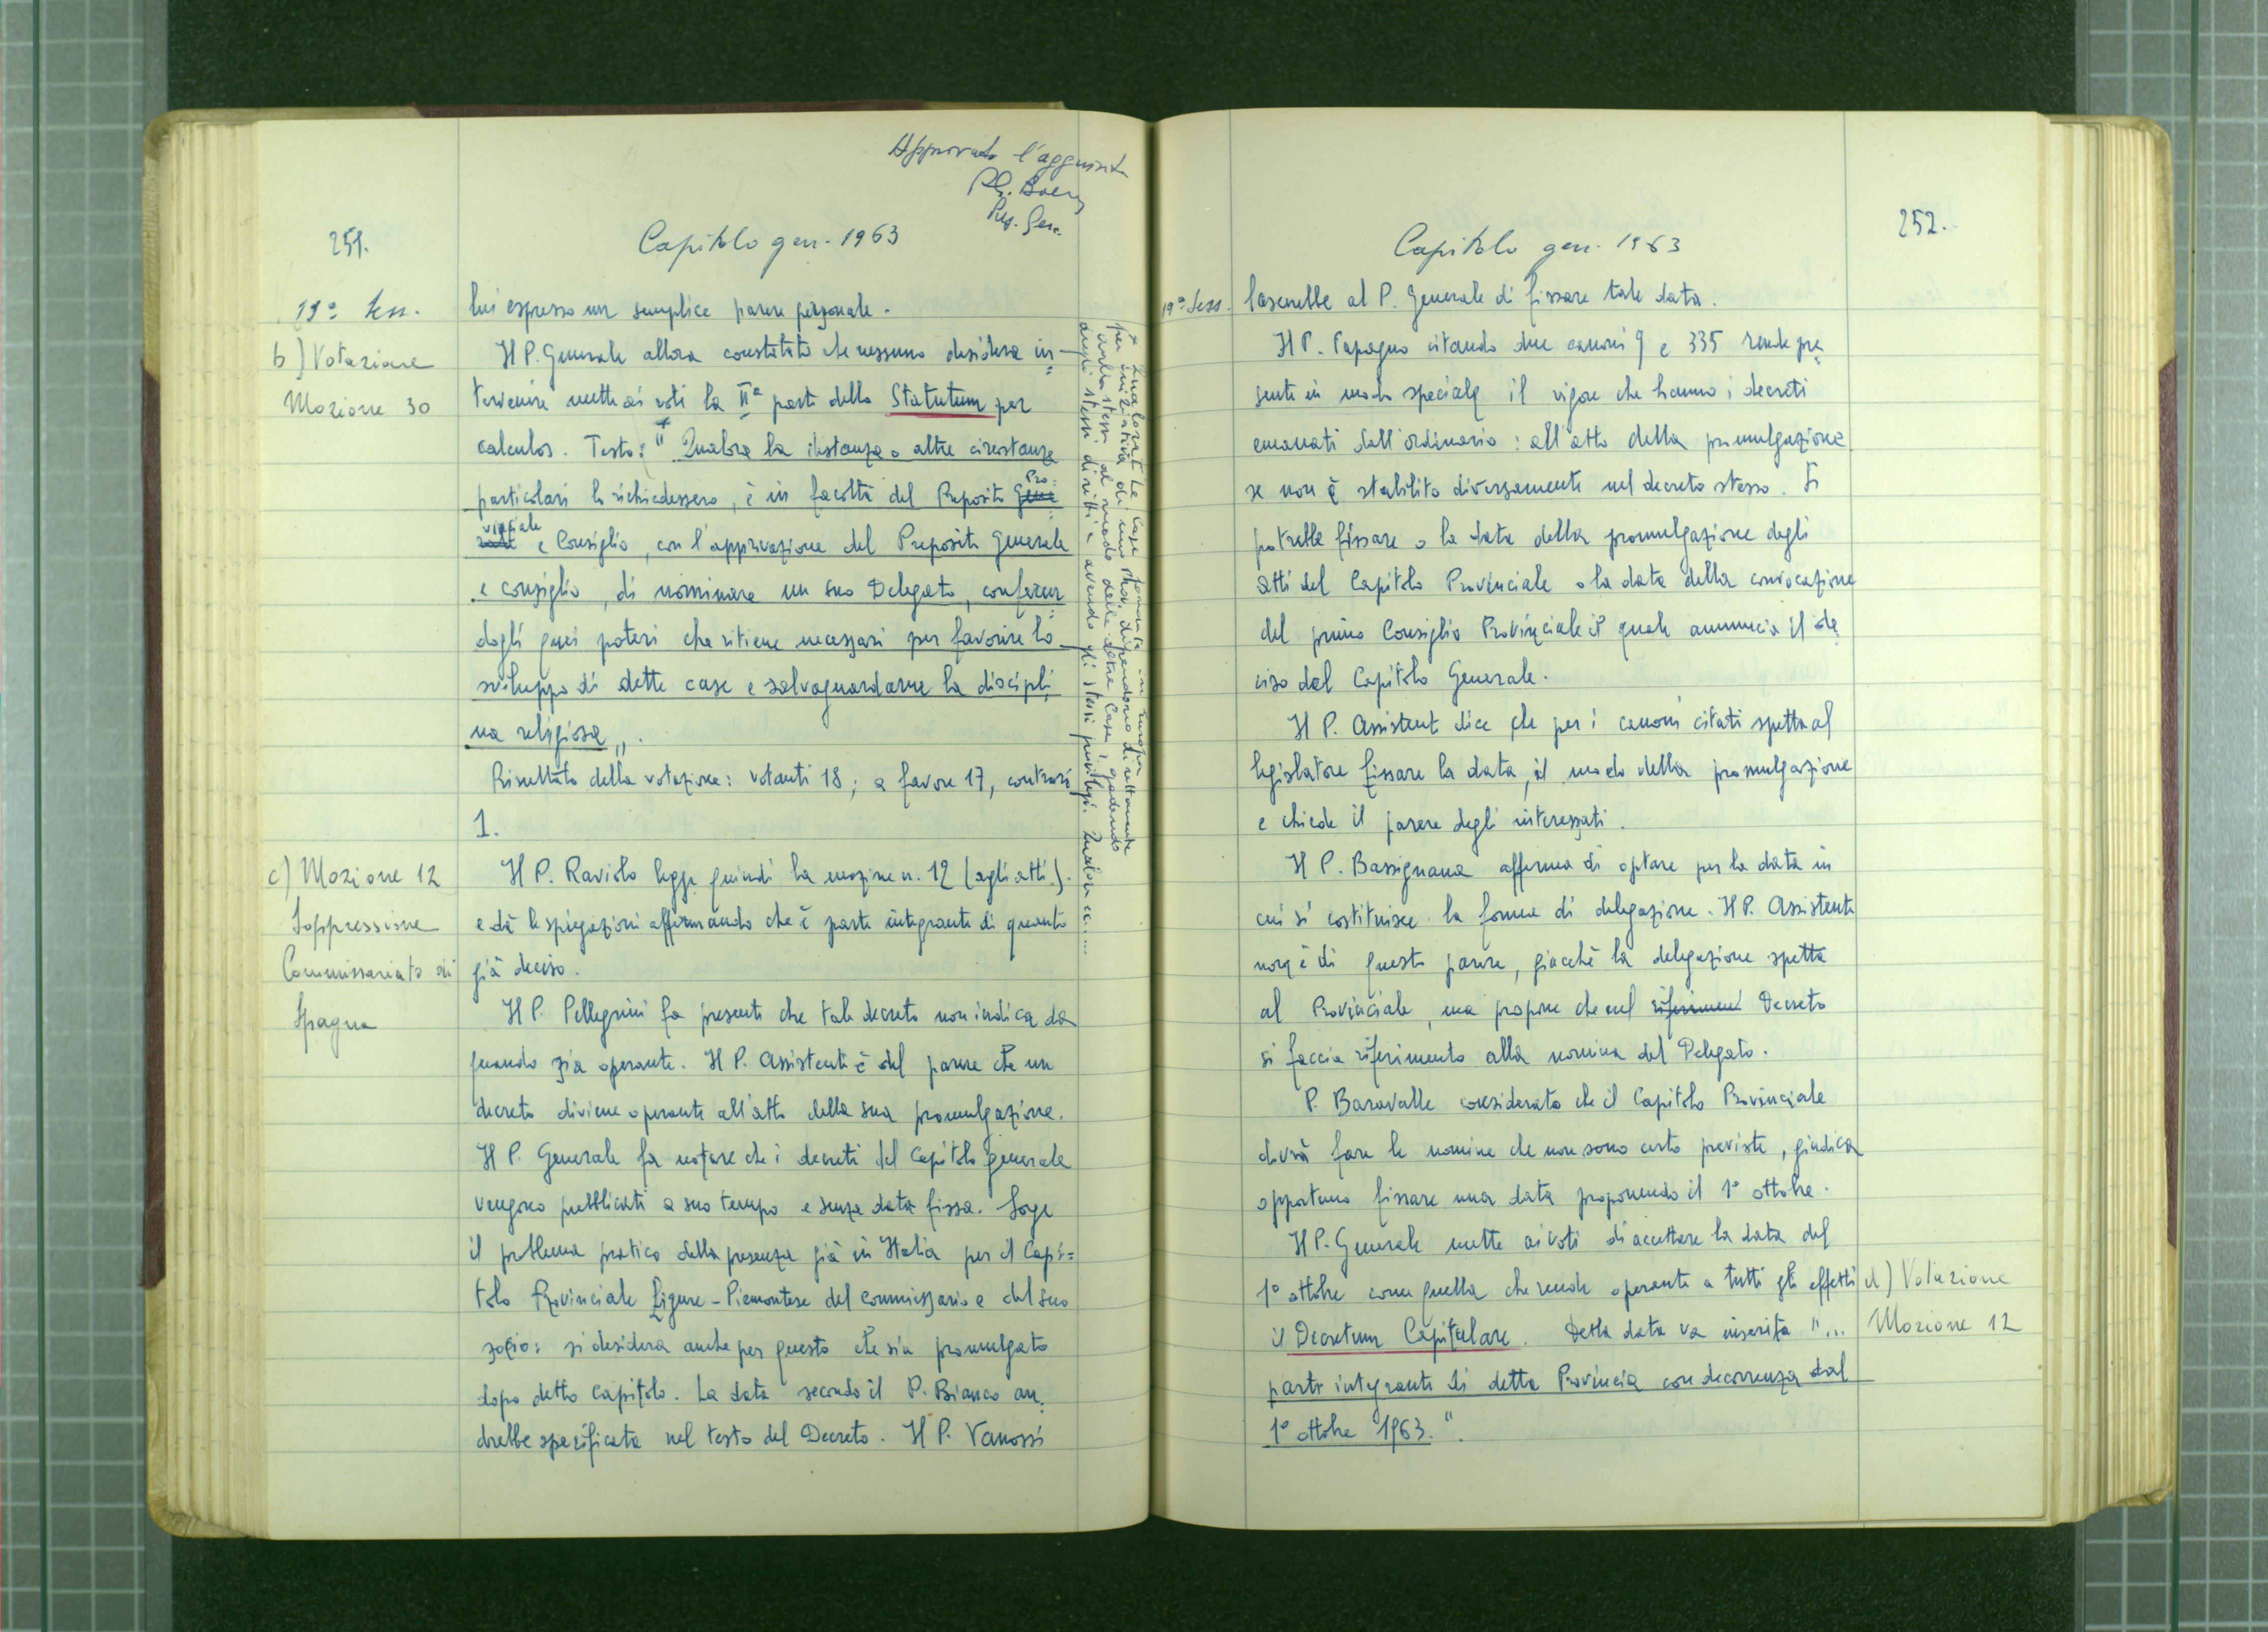 Approvata l'aggiunta
Pl. Boeris
Prep. Gen.
251.
Capitolo gen. 1963
19ª Sess.
b) Votazione
Mozione 30
lui espresso un semplice parere personale.
Il P. Generale allora constatato che nessuno desidera in=
tervenire mette ai voti la IIª parte dello Statutum per
calculos. Testo: + " Qualora la distanza o altre circostanze
particolari lo richiedessero, è in facoltà del Preposito Gene Pro=
rale vinciale e Consiglio, con l'approvazione del Preposito Generale
e consiglio, di nominare un suo Delegato, conferen
dogli quei poteri che ritiene necessari per favorire lo
sviluppo di dette case e salvaguardarne la discipli=
na religiosa ".
Risultato della votazione: votanti 18; a favore 17, contrari
1.
+ Qualora le Case fondate in Europa
per iniziativa di una Prov. dipendono direttamente
dalla stessa al modo delle altre Case, godendo
degli stessi diritti e avendo gli stessi privilegi. Qualora ec.....
c) Mozione 12
Soppressione
Commissariato di
Spagna
Il P. Raviolo legge quindi la mozione n. 12 (agli atti).
e dà le spiegazioni affermando che è parte integrante di quanto
già deciso.
Il P. Pellegrini fa presente che tale decreto non indica da
quando sia operante. Il P. Assistente è del parere che un
decreto diviene operante all'atto della sua promulgazione.
Il P. Generale fa notare che i decreti del Capitolo generale
vengono pubblicati a suo tempo e senza data fissa. Sorge
il problema pratico della presenza già in Italia per il Capi=
tolo Provinciale Ligure-Piemontese del commissario e del suo
socio: si desidera anche per questo che sia promulgato
dopo detto Capitolo. La data secondo il P. Bianco an=
drebbe specificata nel testo del Decreto. Il P. Vanossi
252.
Capitolo gen. 1963
19ª Sess.
lascerebbe al P. Generale di fissare tale data.
Il P. Papagno citando due canoni 9 e 335 rende pre=
sente in modo speciale il vigore che hanno i decreti
emanati dall'ordinario: all'atto della promulgazione
se non è stabilito diversamente nel decreto stesso. Si
potrebbe fissare o la data della promulgazione degli
atti del Capitolo Provinciale o la data della convocazione
del primo Consiglio Provinciale il quale annuncia il de=
ciso del Capitolo Generale.
Il P. Assistente dice che per i canoni citati spetta al
legislatore fissare la data, il modo della promulgazione
e chiede il parere degli interessati.
Il P. Bassignana afferma di optare per la data in
cui si costituisce la forma di delegazione. Il P. Assistente
non è di questo parere, giacchè la delegazione spetta
al Provinciale, ma propone che nel riferimen Decreto
si faccia riferimento alla nomina del Delegato.
P. Baravalle considerato che il Capitolo Provinciale
dovrà fare le nomine che non sono certo previste, giudica
opportuno fissare una data proponendo il 1º ottobre.
Il P. Generale mette ai voti di accettare la data del
1º ottobre come quella che rende operante a tutti gli effetti
il Decretum Capitulare. Detta data va inserita "...
parte integrante di detta Provincia con decorrenza dal
1º ottobre 1963. ".
d) Votazione
Mozione 12